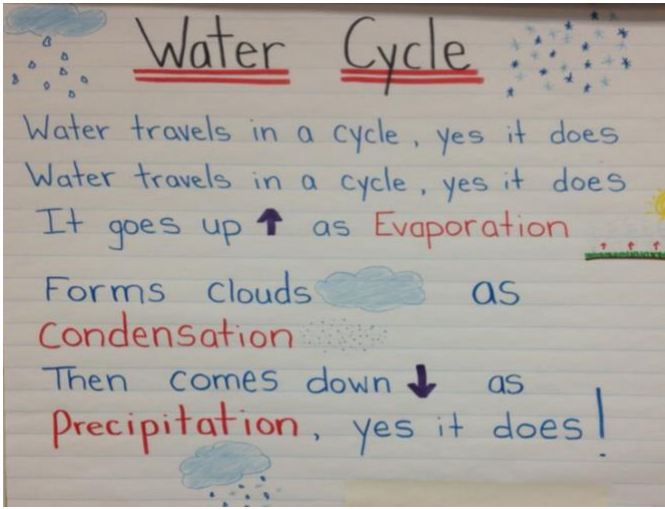 Water Cycle
Water travels in a cycle, yes it does
Water travels in a cycle, yes it does
It goes up ↑ as Evaporation
Forms clouds as
Condensation
Then comes down ↓ as
Precipitation, yes it does!